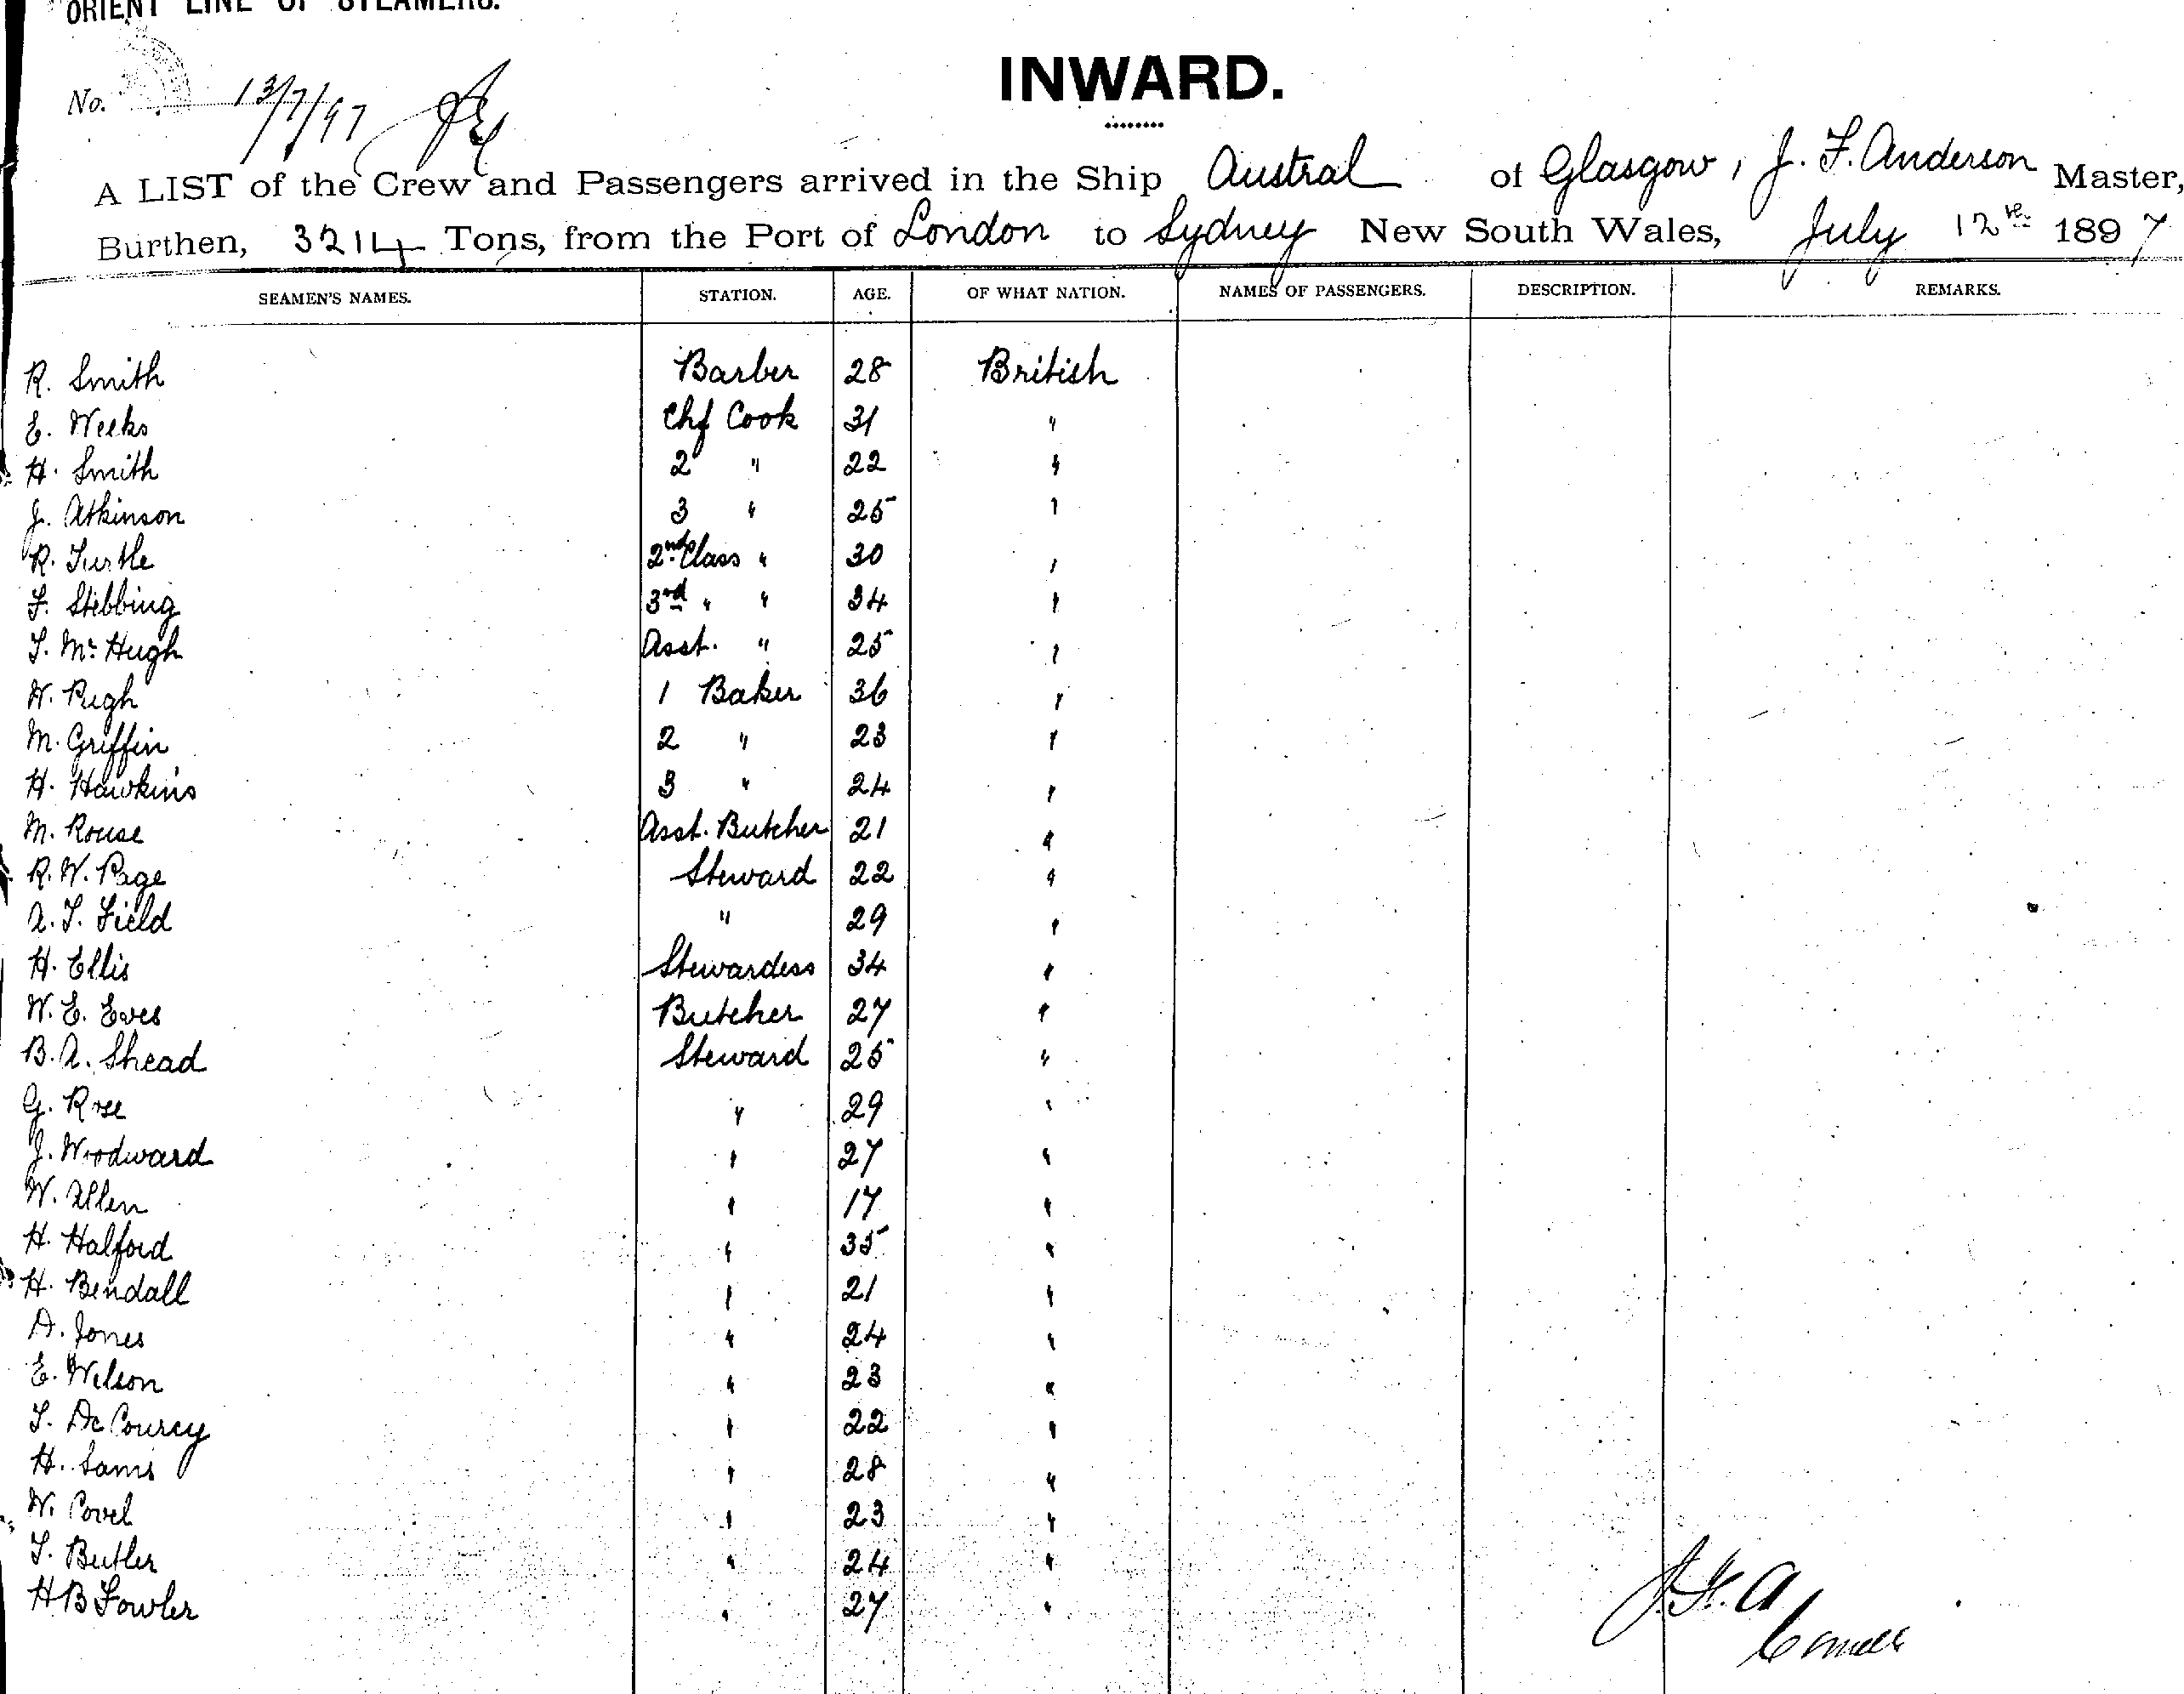 ORIENT LINE OF STEAMERS.
INWARD.
No. 13/7/97
A LIST of the Crew and Passengers arrived in the Ship Austral of Glasgow, J. F. Anderson Master,
Burthen, 3214 Tons, from the Port of London to Sydney New South Wales, July 12th 1897
SEAMEN'S NAMES. STATION. AGE. OF WHAT NATION. NAMES OF PASSENGERS. DESCRIPTION. REMARKS.
R. Smith Barber 28 British
E. Weeks Chf Cook 31 "
H. Smith 2 " 22 "
J. Atkinson 3 " 25 "
R. Turtle 2nd Class " 30 "
F. Stebbing 3rd " " 34 "
T. Mc Hugh Asst. " 25 "
W. Pugh 1 Baker 36 "
M. Griffin 2 " 23 "
H. Hawkins 3 " 24 "
M. Rouse Asst. Butcher 21 "
R. W. Page Steward 22 "
A. T. Field " 29 "
H. Ellis Stewardess 34 "
W. E. Eves Butcher 27 "
B. A. Shead Steward 25 "
G. Rose " 29 "
J. Woodward " 27 "
W. Allen " 17 "
H. Halford " 35 "
H. Bendall " 21 "
A. Jones " 24 "
E. Wilson " 23 "
T. De Courcy " 22 "
H. Sams " 28 "
W. Covel " 23 "
T. Butler " 24 "
H B Fowler " 27 "
J. F. A